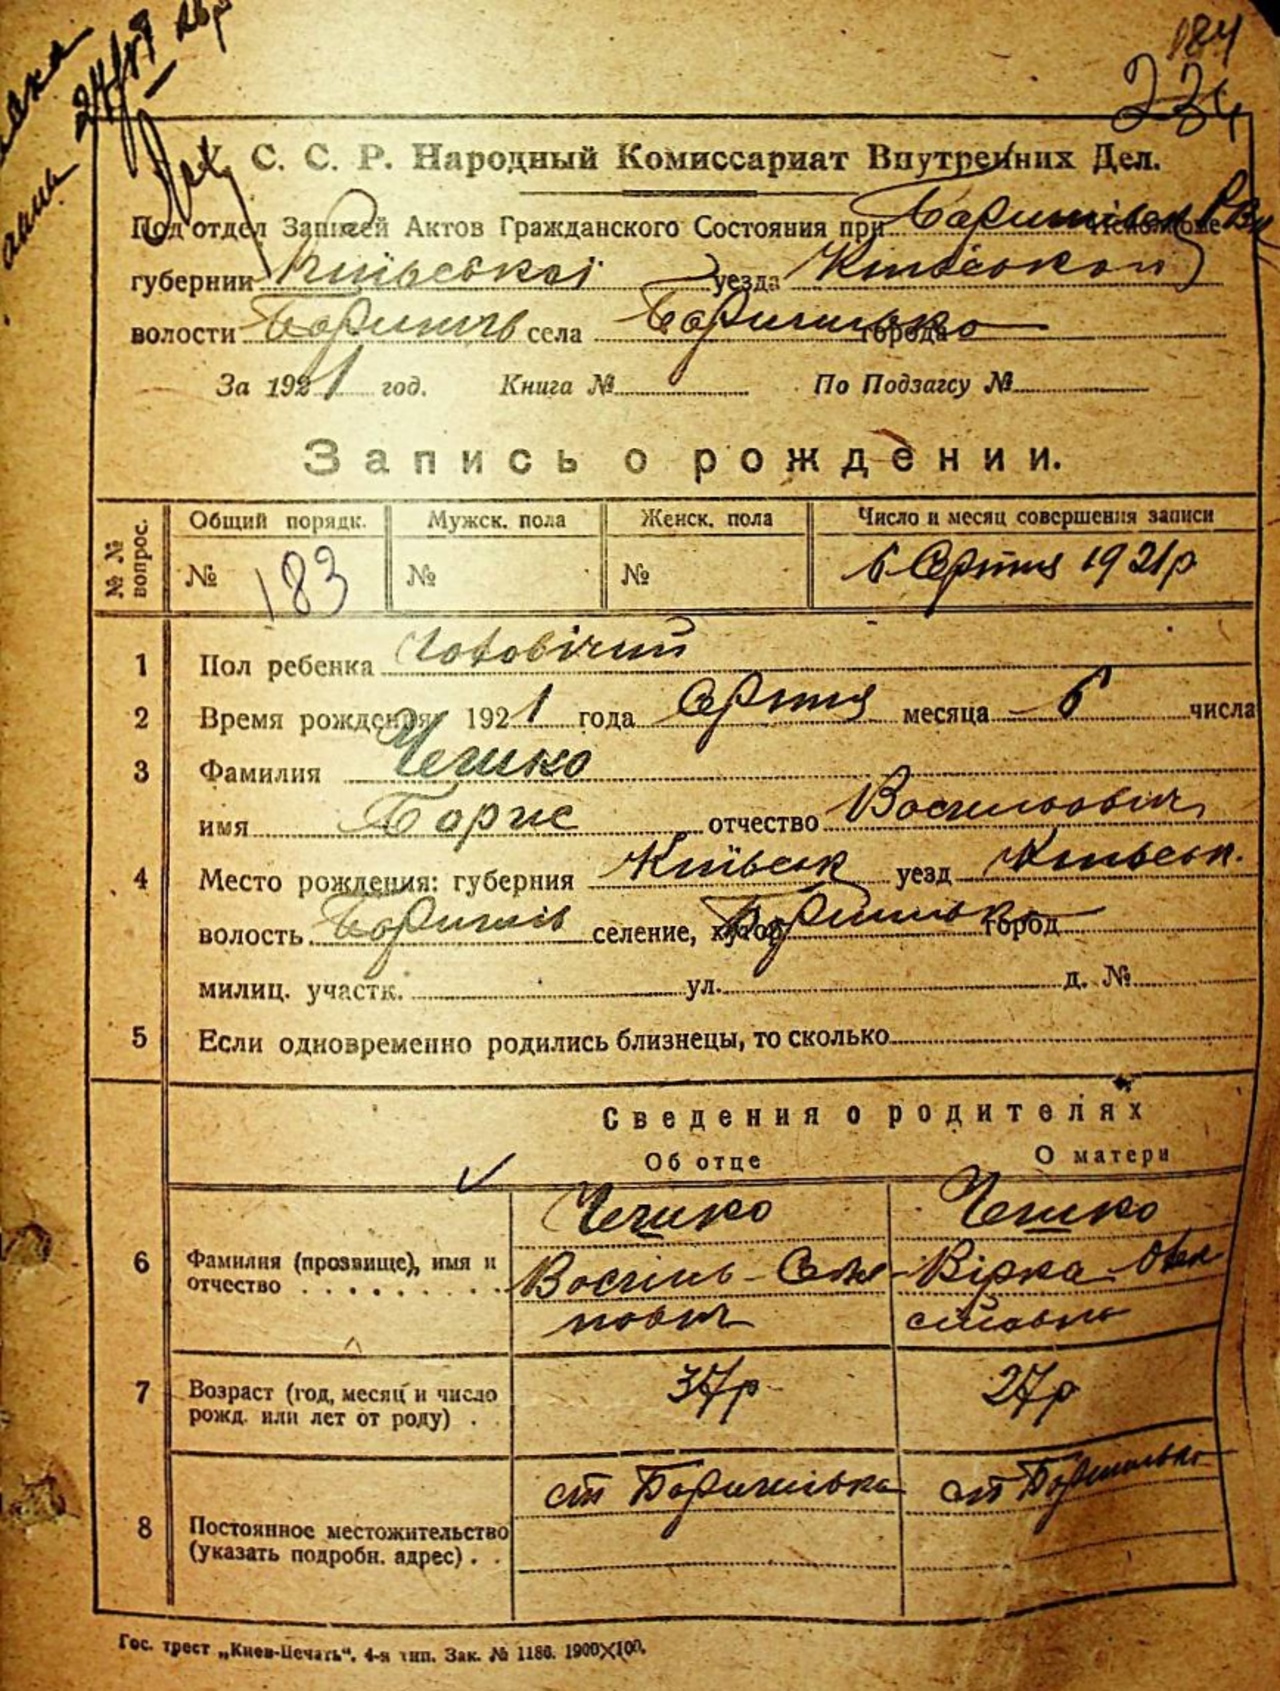 184
234
С. С. Р. Народный Комиссариат Внутренних Дел.
Под отдел Записей Актов Гражданского Состояния при
губернии Київської уезда Київського
волости села города
За 1921 год. Книга № По Подзагсу №
Запись о рождении.
№ № вопрос. Общий порядк. Мужск. пола Женск. пола Число и месяц совершения записи
№ 183 № № 6 Серпня 1921р
1 Пол ребенка Чоловічий
2 Время рождения: 1921 года Серпня месяца 6 числа
3 Фамилия Чешко
имя Борис отчество Васильович
4 Место рождения: губерния Київськ уезд Київськ.
волость селение, хутор город
милиц. участк. ул. д. №
5 Если одновременно родились близнецы, то сколько
Сведения о родителях
Об отце О матери
Чешко Чешко
6 Фамилия (прозвище), имя и отчество Василь Вірка
7 Возраст (год, месяц и число рожд. или лет от роду) . 37р 27р
8 Постоянное местожительство (указать подробн. адрес) . . ст ст
Гос. трест „Киев-Печать“. 4-я тип. Зак. № 1186. 1900×100.